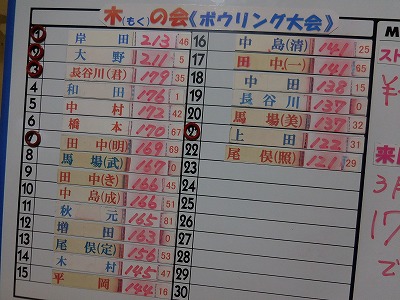 木(もく)の会《ボウリング大会》
1 岸田 213 46
2 大野 211 5
3 長谷川(君) 179 35
4 和田 176 1
5 中村 172 42
6 橋本 170 67
7 田中(明) 169 69
8 馬場(武) 167 0
9 田中(き) 166 45
10 中島(成) 166 51
11 秋元 165 81
12 増田 163 0
13 尾俣(定) 156 53
14 木村 145 47
15 平岡 144 16
16 中島(清) 141 25
17 田中(一) 141 65
18 中田 138 15
19 長谷川 137 0
20 馬場(美) 137 32
21 上田 122 31
22 尾俣(照) 121 29
23
24
25
26
27
28
29
30
M
スト
¥
来
3月
17
で